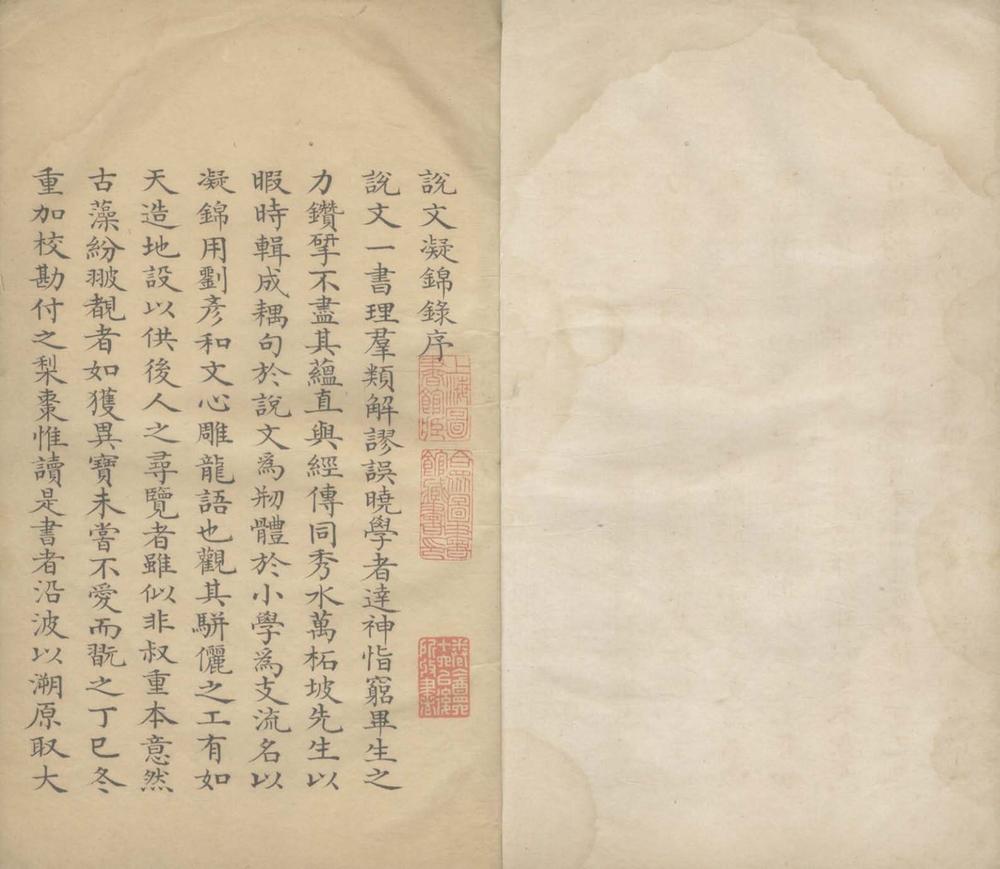 說文凝錦錄序
說文一書理羣類解謬誤曉學者達神恉窮畢生之
力鑽揅不盡其蘊直與經傳同秀水萬柘坡先生以
暇時輯成耦句於說文為剏體於小學為支流名以
凝錦用劉彥和文心雕龍語也觀其駢儷之工有如
天造地設以供後人之尋覽者雖似非叔重本意然
古藻紛披覩者如獲異寶未嘗不愛而翫之丁巳冬
重加校勘付之梨棗惟讀是書者沿波以溯原取大
上海圖書館藏